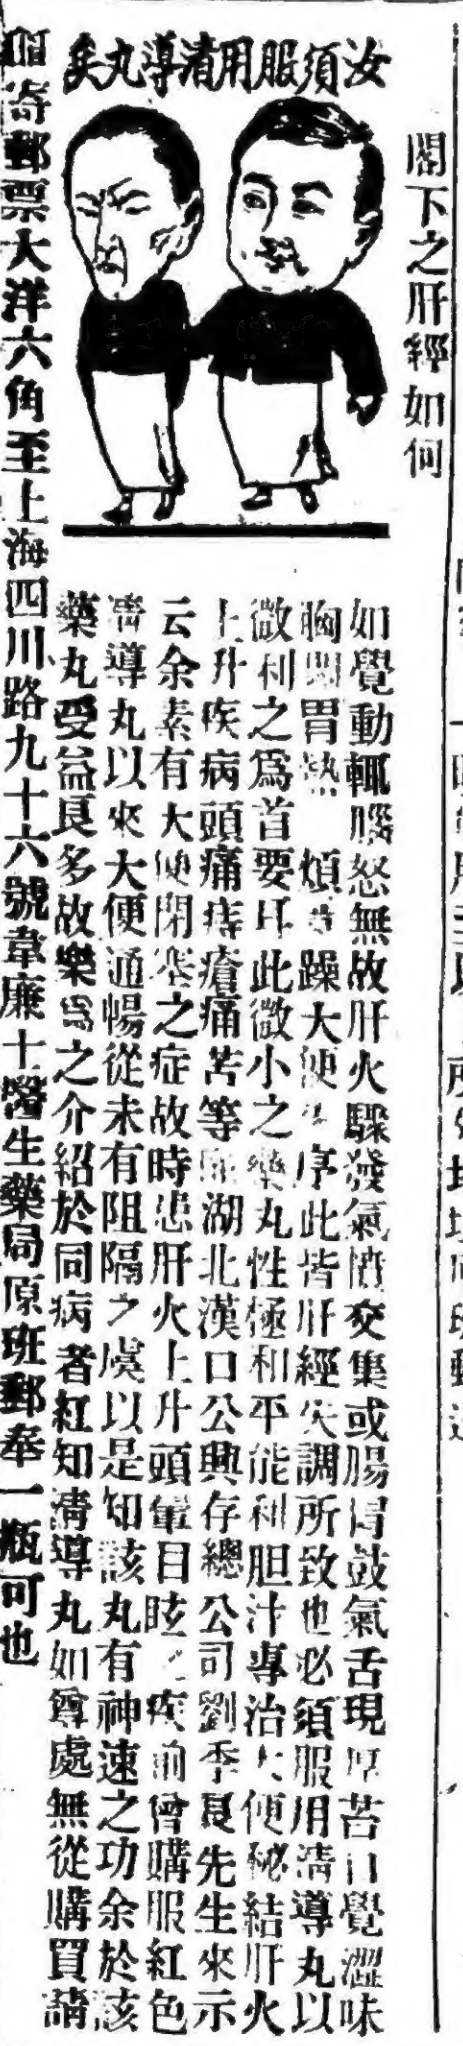 閣下之肝經如何
汝須服用清導丸矣
如覺動輒腦怒無故肝火驟發氣憤交集或腸胃鼓氣舌現厚苔口覺澀味
胸悶胃熱煩躁大便失序此皆肝經失調所致也必須服用清導丸以
微利之爲首要耳此微小之藥丸性極和平能利胆汁專治大便秘結肝火
上升疾病頭痛痔瘡痛苦等湖北漢口公興存總公司劉季良先生來示
云余素有大便閉塞之症故時患肝火上升頭暈目眩之疾前曾購服紅色
清導丸以來大便通暢從未有阻隔之虞以是知該丸有神速之功余於該
藥丸受益良多故樂爲之介紹於同病者紅知清導丸如尊處無從購買請
寄郵票大洋六角至上海四川路九十六號韋廉士醫生藥局原班郵奉一瓶可也